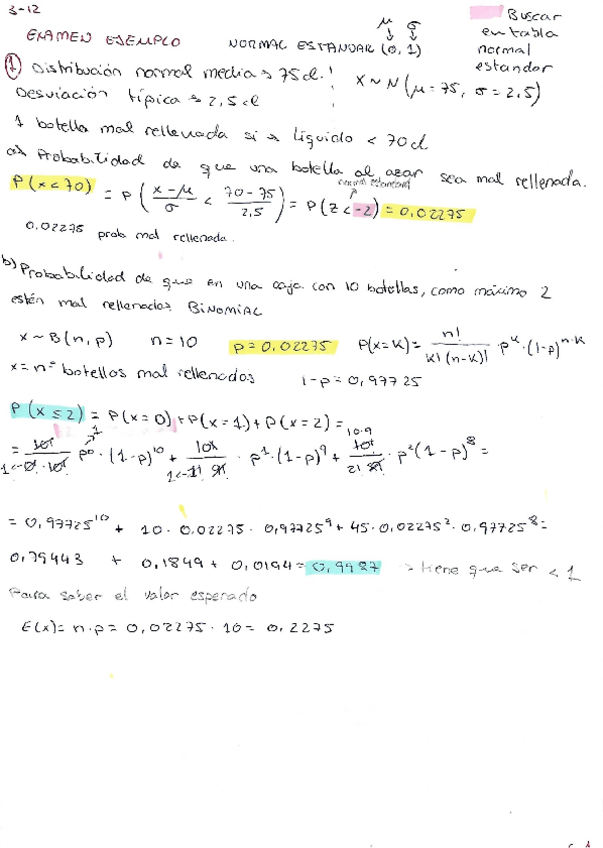 3-12
EXAMEN EJEMPLO NORMAL ESTANDAR (0, 1)
μ σ
↓ ↓
Buscar
en tabla
normal
estandar
① Distribución normal media → 75cl. X ~ N (μ = 75, σ = 2,5)
Desviación típica → 2,5 cl
1 botella mal rellenada si → líquido < 70cl
a) Probabilidad de que una botella al azar sea mal rellenada.
normal estandar
P(x<70) = P( (x-μ)/σ < (70-75)/2,5 ) = P(Z < -2) = 0,02275
0,02275 prob mal rellenada.
b) Probabilidad de que en una caja con 10 botellas, como máximo 2
estén mal rellenadas. BINOMIAL
x ~ B(n,p) n=10 p=0,02275 P(x=K)= n!/(K!(n-K)!) · p^K · (1-p)^n-K
x = nº botellas mal rellenadas 1-p = 0,97725
P(x≤2) = P(x=0) + P(x=1) + P(x=2) =
= 10!/(0!·10!) p⁰ · (1-p)¹⁰ + 10!/(1! 9!) · p¹ · (1-p)⁹ + 10!/(2! 8!) · p² (1-p)⁸ =
= 0,97725¹⁰ + 10 · 0,02275 · 0,97725⁹ + 45 · 0,02275² · 0,97725⁸ =
0,79443 + 0,1849 + 0,0194 = 0,9987 → tiene que ser < 1
Para saber el valor esperado
E(x) = n · p = 0,02275 · 10 = 0,2275